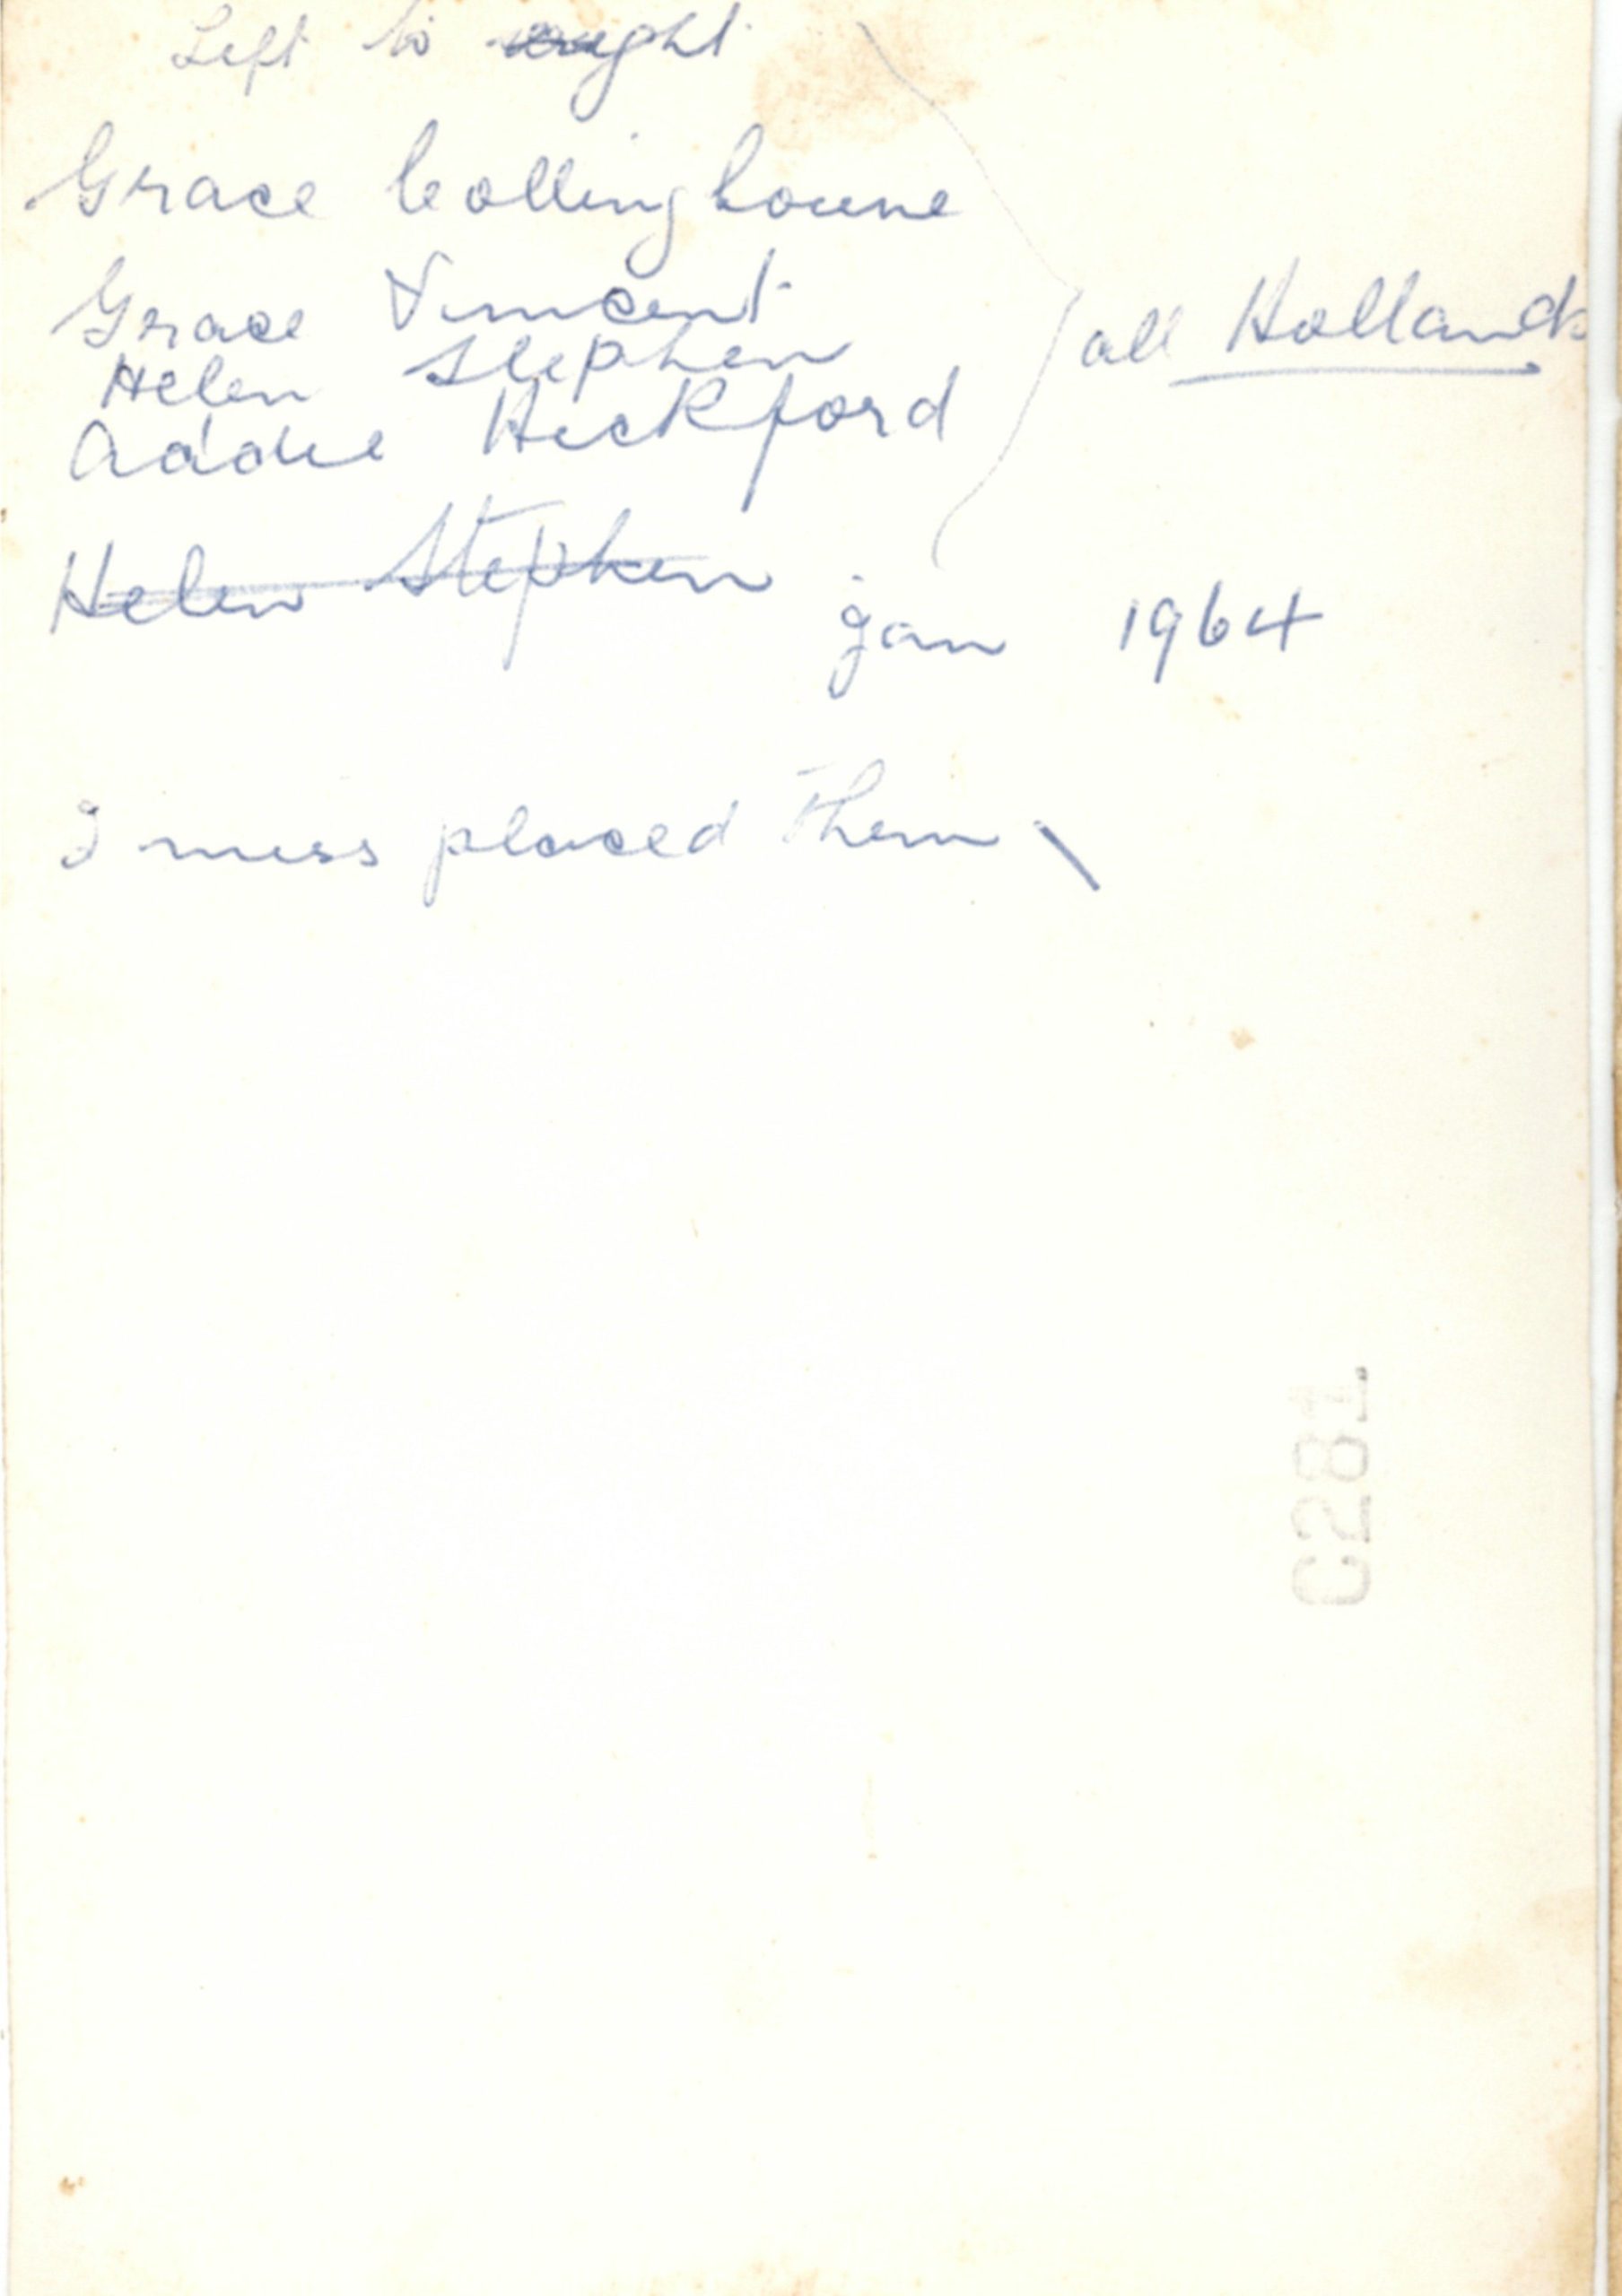 Left to right
Grace Collingbourne
Grace Vincent
Helen Stephen
Addie Heckford
all Hollands
Helen Stephen
Jan 1964
I miss placed them
C281